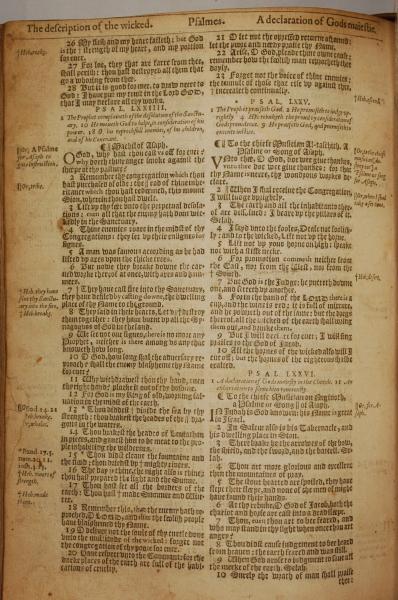 The description of the wicked. Psalmes. A declaration of Gods maiestie.
26 My flesh and my heart faileth: but God
is the strength of my heart, and my portion
for euer.
27 For loe, they that are farre from thee,
shall perish: thou hast destroyed all them that
go a whoring from thee.
28 But it is good for me, to draw neere to
God: I haue put my trust in the Lord GOD,
that I may declare all thy works.
PSAL. LXXIIII.
1 The Prophet complaineth of the desolation of the Sanctuary,
and his Couenant.
Maschil of Asaph.
O God, why hast thou cast vs off for euer?
why doeth thine anger smoke against the
sheepe of thy pasture?
2 Remember thy congregation which thou
hast purchased of olde: the rod of thine inheritance
which thou hast redeemed, this mount
Sion, wherein thou hast dwelt.
3 Lift vp thy feet vnto the perpetuall desolations:
euen all that the enemy hath done wickedly
in the Sanctuary.
4 Thine enemies roare in the midst of thy
Congregations: they set vp their ensignes for
signes.
5 A man was famous according as he had
lifted vp axes vpon the thicke trees.
6 But now they breake downe the carued
worke thereof at once, with axes and hammers.
7 They haue cast fire into thy Sanctuary,
they haue defiled by casting downe, the dwelling
place of thy Name to the ground.
8 They said in their hearts, Let vs destroy
them together: they haue burnt vp all the Synagogues
of God in the land.
9 We see not our signes, there is no more any
Prophet, neither is there among vs any that
knoweth how long.
10 O God, how long shall the aduersary reproach?
shall the enemy blaspheme thy Name
for euer?
11 Why withdrawest thou thy hand, euen
thy right hand? plucke it out of thy bosome.
12 For God is my King of old, working saluation
in the midst of the earth.
13 Thou diddest diuide the sea by thy
strength: thou brakest the heads of the dragons
in the waters.
14 Thou brakest the heads of Leuiathan
in pieces, and gauest him to be meat to the people
inhabiting the wildernes.
15 Thou didst cleaue the fountaine and
the flood: thou driedst vp mighty riuers.
16 The day is thine, the night also is thine:
thou hast prepared the light and the Sunne.
17 Thou hast set all the borders of the
earth: Thou hast made Summer and Winter.
18 Remember this, that the enemy hath reproched,
O LORD, and that the foolish people
haue blasphemed thy Name.
19 O deliuer not the soule of thy turtle doue
vnto the multitude of the wicked: forget not
the congregation of thy poore for euer.
20 Haue respect vnto the Couenant: for the
darke places of the earth are full of the habitations
of cruelty.
21 O let not the oppressed returne ashamed:
let the poore and needy praise thy Name.
22 Arise, O God, plead thine owne cause:
remember how the foolish man reproacheth thee
dayly.
23 Forget not the voice of thine enemies:
the tumult of those that rise vp against thee,
increaseth continually.
PSAL. LXXV.
To the chiefe Musician Al-taschith, A
Psalme or Song of Asaph.
Vnto thee, O God, doe wee giue thanks,
vnto thee doe wee giue thanks: for that
thy Name is neere, thy wondrous works declare.
2 When I shall receiue the Congregation,
I will iudge vprightly.
3 The earth and all the inhabitants thereof
are dissolued: I beare vp the pillars of it.
Selah.
4 I said vnto the fooles, Deale not foolishly:
and to the wicked, Lift not vp the horne.
5 Lift not vp your horne on high: speake
not with a stiffe necke.
6 For promotion commeth neither from
the East, nor from the West, nor from the
South.
7 But God is the Iudge: he putteth downe
one, and setteth vp another.
8 For in the hand of the LORD there is a
cup, and the wine is red: it is full of mixture,
and he powreth out of the same: but the dregs
thereof, all the wicked of the earth shall wring
them out, and drinke them.
9 But I will declare for euer; I will sing
praises to the God of Iacob.
10 All the hornes of the wicked also will I
cut off; but the hornes of the righteous shalbe
exalted.
PSAL. LXXVI.
1 A declaration of Gods maiesty in the Church. 11 An
exhortation to serue him reuerently.
To the chiefe Musician on Neginoth,
a Psalme or Song of Asaph.
In Iudah is God knowen: his Name is great
in Israel.
2 In Salem also is his Tabernacle, and
his dwelling place in Sion.
3 There brake he the arrowes of the bow,
the shield, and the sword, and the battell. Selah.
4 Thou art more glorious and excellent
then the mountaines of pray.
5 The stout hearted are spoiled, they haue
slept their sleepe, and none of the men of might
haue found their hands.
6 At thy rebuke, O God of Iacob, both the
chariot and horse are cast into a dead sleepe.
7 Thou, euen thou art to be feared, and
who may stand in thy sight when once thou art
angry?
8 Thou didst cause iudgement to be heard
from heauen: the earth feared and was still.
9 When God arose to iudgement to saue all
the meeke of the earth. Selah.
10 Surely the wrath of man shall praise
thee: